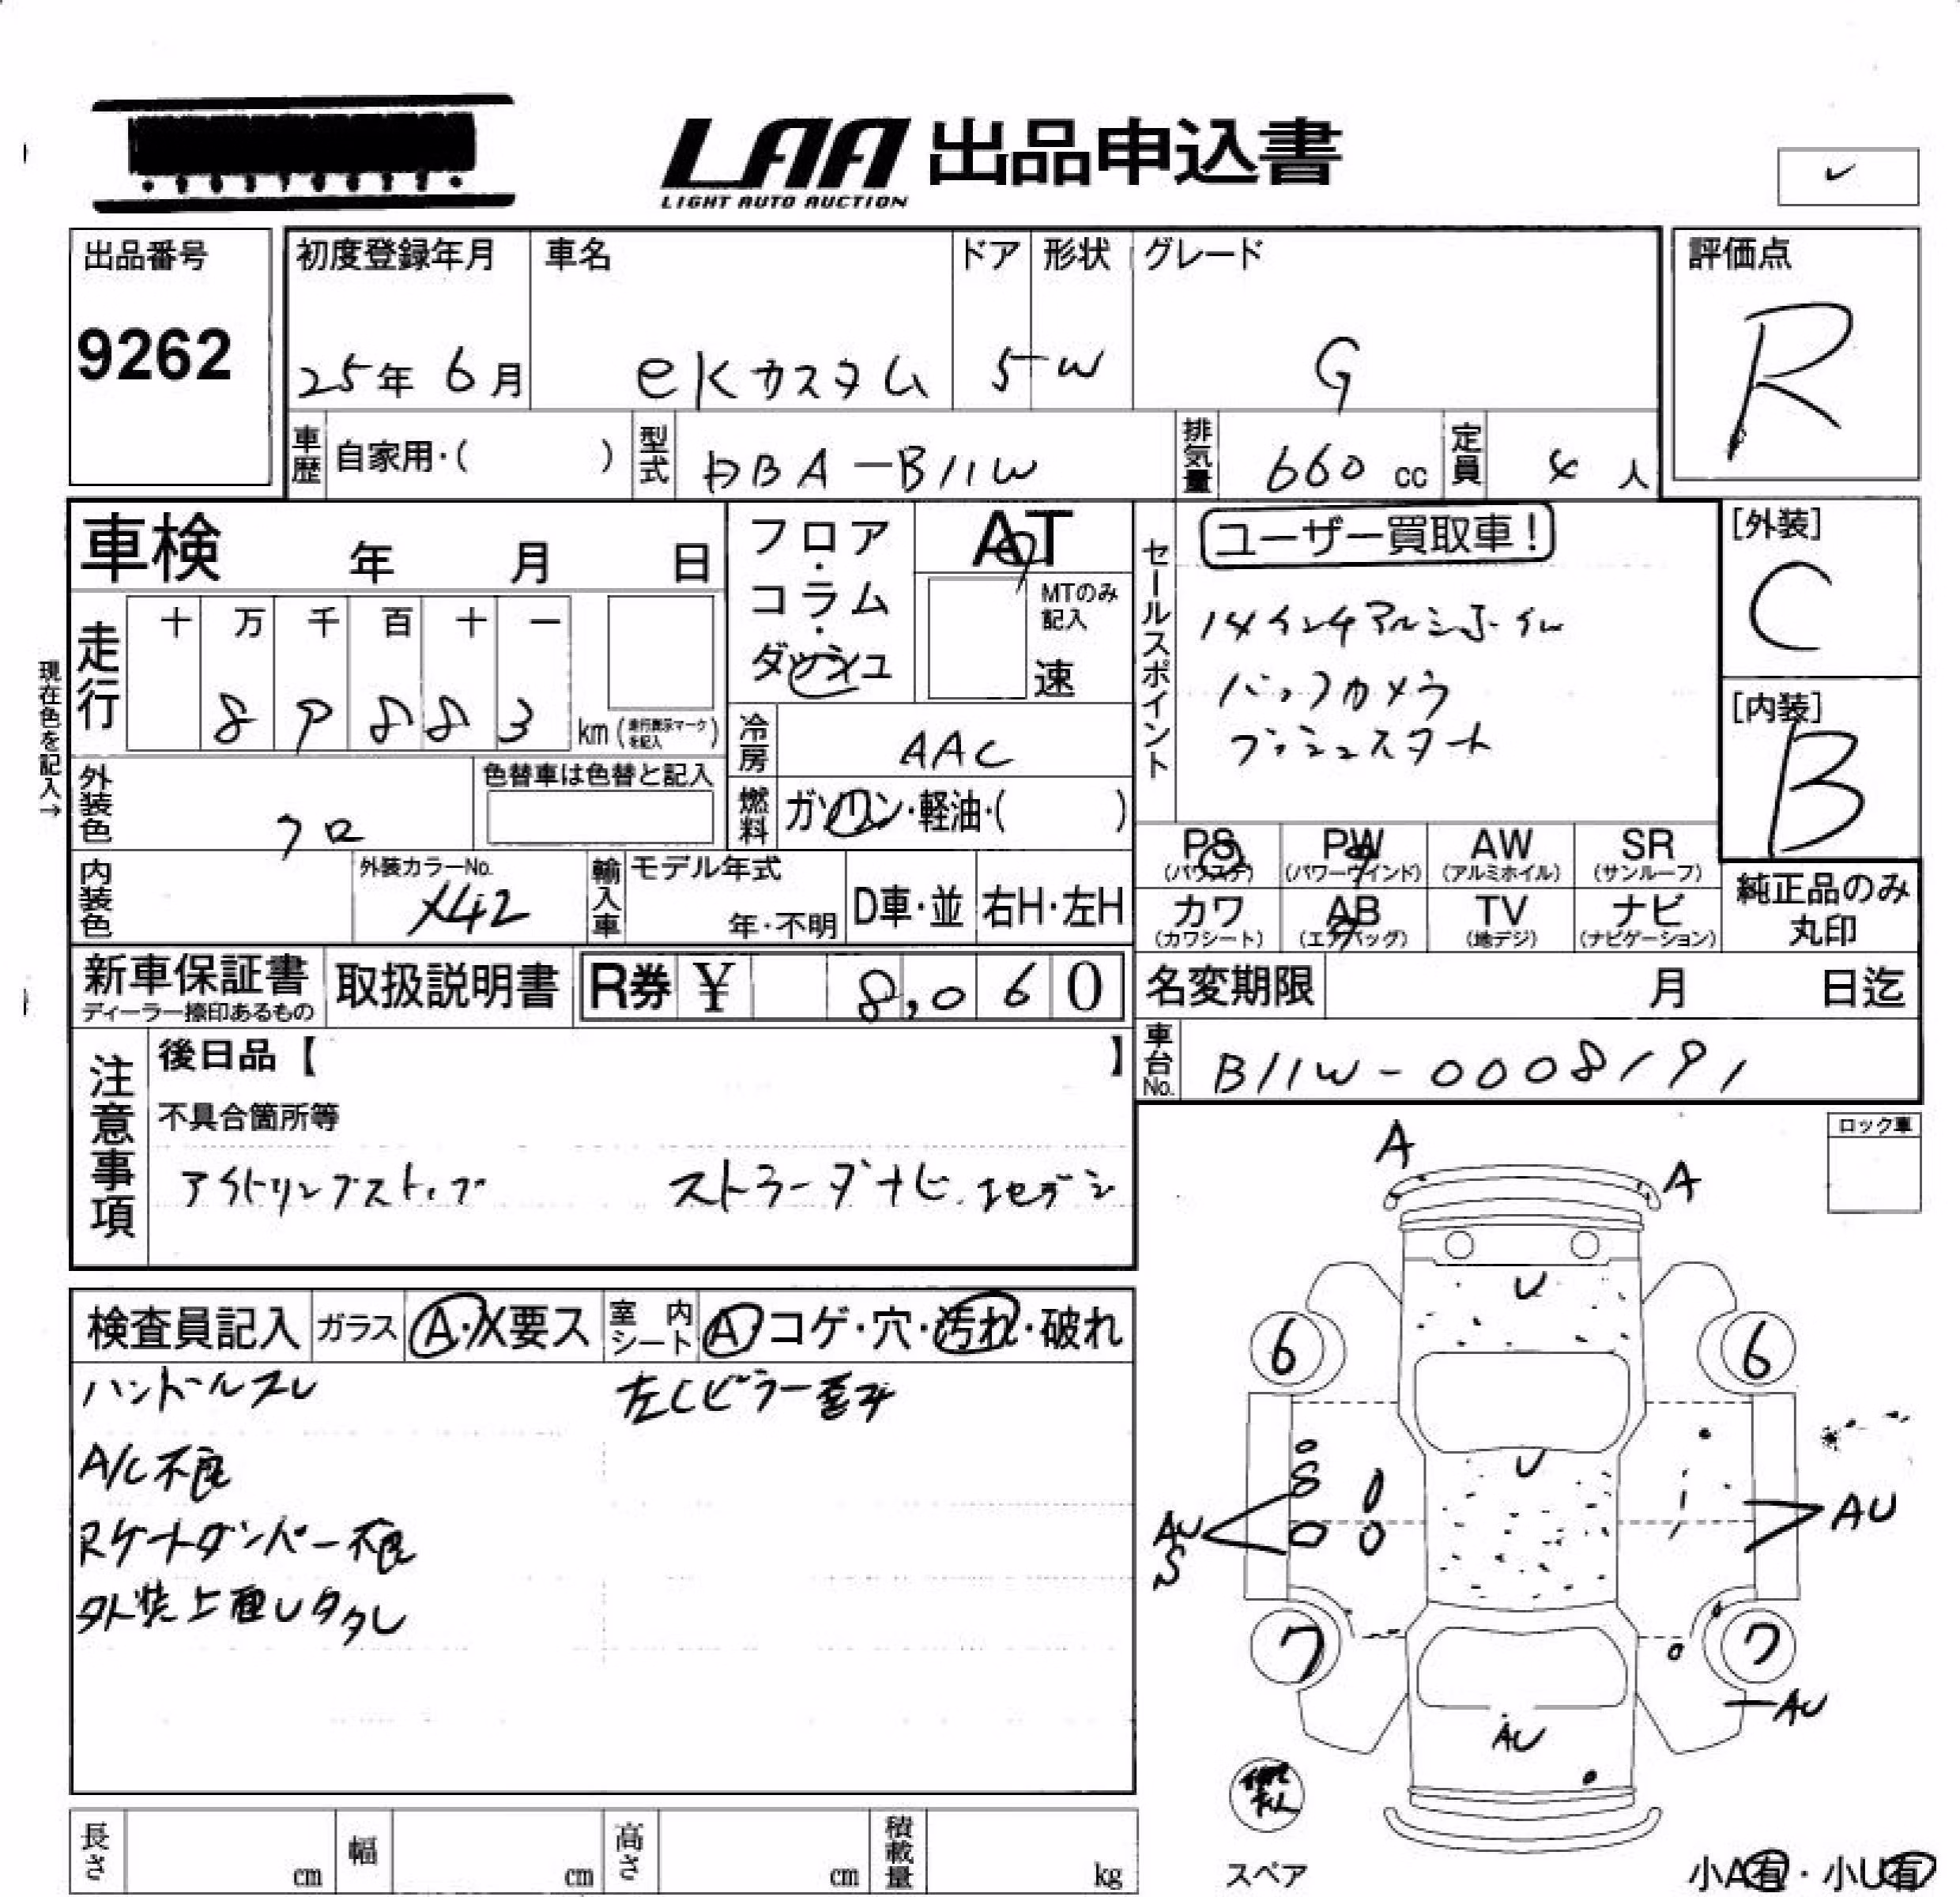 LAA 出品申込書
LIGHT AUTO AUCTION
出品番号
9262
初度登録年月
25年 6月
車名
eKカスタム
ドア
5
形状
W
グレード
G
評価点
R
車歴 自家用・( )
型式 DBA-B11W
排気量 660 cc
定員 4人
車検 年 月 日
フロア・コラム・ダッシュ
AT
MTのみ記入
速
セールスポイント
ユーザー買取車!
14インチアルミホイル
バックカメラ
プッシュスタート
[外装]
C
[内装]
B
現在色を記入→
走行
十 万 千 百 十 一
8 9 8 8 3
km(走行表示マークを記入)
冷房 AAC
外装色 クロ
色替車は色替と記入
燃料 ガソリン・軽油・( )
PS (パワステ)
PW (パワーウインド)
AW (アルミホイル)
SR (サンルーフ)
カワ (カワシート)
AB (エアバッグ)
TV (地デジ)
ナビ (ナビゲーション)
純正品のみ丸印
内装色
外装カラーNo.
X42
輸入車
モデル年式
年・不明
D車・並
右H・左H
新車保証書
ディーラー捺印あるもの
取扱説明書
R券 ¥ 8,060
名変期限 月 日迄
車台No. B11W-0008191
注意事項
後日品【 】
不具合箇所等
アイドリングストップ ストラーダナビ
検査員記入
ガラス A・X要ス
室内シート A コゲ・穴・汚れ・破れ
ハンドルスレ
左Cピラー
A/C不良
Rゲートダンパー不良
外装上面
ロック車
A
A
U
6
6
U
AU
S
AU
7
7
AU
AU
スペア
小A有・小U有
長さ cm
幅 cm
高さ cm
積載量 kg